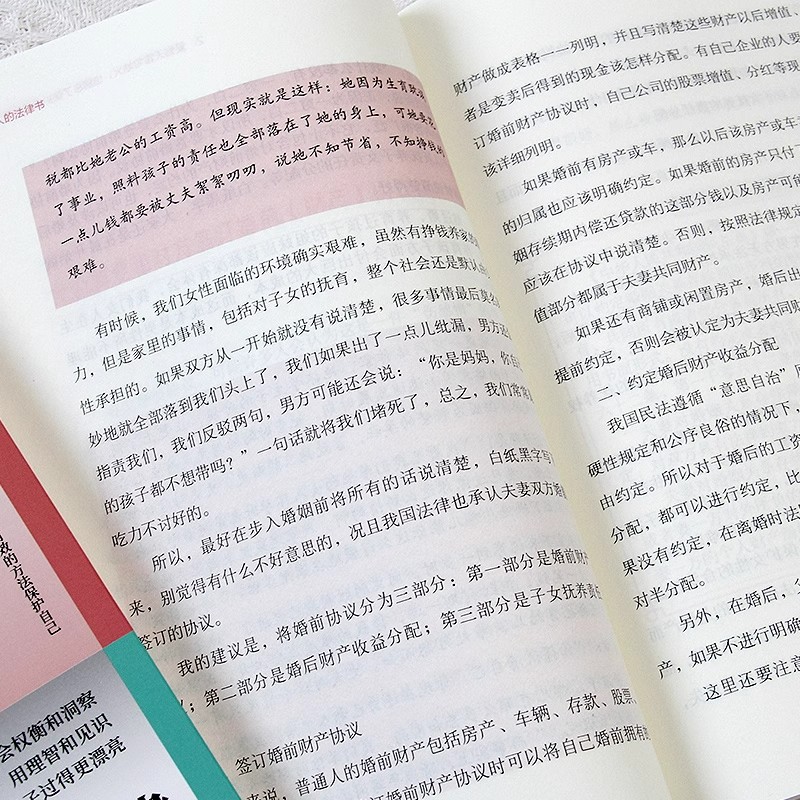 人的法律书
税都比她老公的工资高。但现实就是这样：她因为生育耽
了事业，照料孩子的责任也全部落在了她的身上，可她
一点儿钱都要被丈夫絮絮叨叨，说她不知节省，不知挣钱
艰难。
有时候，我们女性面临的环境确实艰难，虽然有挣钱养家的
力，但是家里的事情，包括对子女的抚育，整个社会还是默认由
性承担的。如果双方从一开始就没有说清楚，很多事情最后莫名
妙地就全部落到我们头上了，我们如果出了一点儿纰漏，男方
指责我们，我们反驳两句，男方可能还会说：“你是妈妈，你自
的孩子都不想带吗？”一句话就将我们堵死了，总之，我们常常
吃力不讨好的。
所以，最好在步入婚姻前将所有的话说清楚，白纸黑字写
来，别觉得有什么不好意思的，况且我国法律也承认夫妻双方婚
签订的协议。
我的建议是，将婚前协议分为三部分：第一部分是婚前
；第二部分是婚后财产收益分配；第三部分是子女抚养责任
签订婚前财产协议
来说，普通人的婚前财产包括房产、车辆、存款、股票
订婚前财产协议时可以将自己婚前拥有的
财产做成表格一一列明，并且写清楚这些财产以后增值、
者是变卖后得到的现金该怎样分配。有自己企业的人要
订婚前财产协议时，自己公司的股票增值、分红等现
该详细列明。
如果婚前有房产或车，那么以后该房产或车
的归属也应该明确约定。如果婚前的房产只付了
姻存续期内偿还贷款的这部分钱以及房产可能
应该在协议中说清楚。否则，按照法律规定
值部分都属于夫妻共同财产。
如果还有商铺或闲置房产，婚后出
提前约定，否则会被认定为夫妻共同财
二、约定婚后财产收益分配
我国民法遵循“意思自治”原
硬性规定和公序良俗的情况下，
由约定。所以对于婚后的工资
分配，都可以进行约定，比
果没有约定，在离婚时法
对半分配。
另外，在婚后，
产，如果不进行明确
这里还要注意
效的方法保护自己
会权衡和洞察
用理智和见识
子过得更漂亮